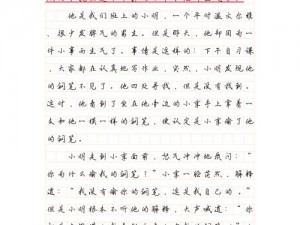 他是我们班上的小明，一个平时温文尔雅
、很少发脾气的男生。但是那天，他却因有一
件小事而生气了。事情是这样的：下午自习课
，大家都在认真地写作业，突然，小明发现他
的钢笔不见了。他四处寻找，但是没有找到。
这时，他看到了坐在他旁边的小李手上拿着一
支和他一模一样的钢笔，便认定是小李偷了他
的钢笔。
小明走到小李面前，怒气冲冲地质问：“
你为什么偷我的钢笔？”小李一脸茫然，解释
道：“我没有偷你的钢笔，这是我自己的。”
但是小明根本不听他的解释，大声喊道：“你